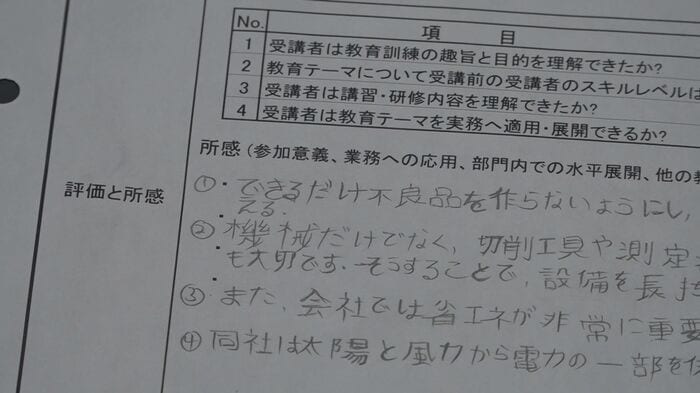 No. 項目
1 受講者は教育訓練の趣旨と目的を理解できたか?
2 教育テーマについて受講前の受講者のスキルレベルは
3 受講者は講習・研修内容を理解できたか?
4 受講者は教育テーマを実務へ適用・展開できるか?
評価と所感
所感(参加意義、業務への応用、部門内での水平展開、他の
①・できるだけ不良品を作らないようにし、
える.
② 機械だけでなく、切削工具や測定
も大切です.そうすることで、設備を長持
③・また、会社では省エネが非常に重要
④ 同社は太陽と風力から電力の一部を